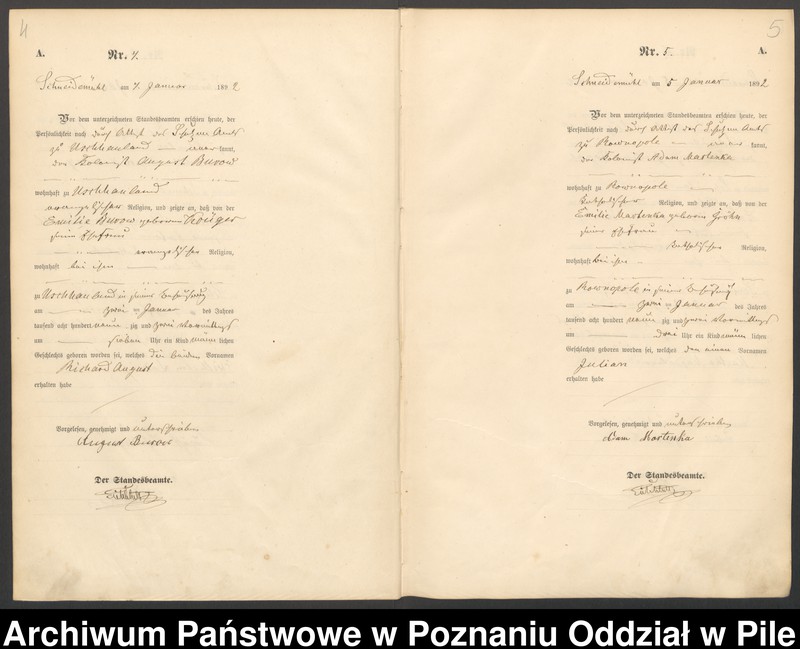 4
A.
Nr. 4.
Schneidemühl am 4. Januar 1892
Vor dem unterzeichneten Standesbeamten erschien heute, der
Persönlichkeit nach durch Attest des Schulzen Amts
zu Uschhauland kannt,
der Kolonist August Burow
wohnhaft zu Uschhauland
evangelischer Religion, und zeigte an, daß von der
Emilie Burow geborene Krüger
seiner Ehefrau
evangelischer Religion,
wohnhaft bei ihm
zu Uschhauland in seiner Behausung
am zwei Januar des Jahres
tausend acht hundert neun zig und zwei Vormittags
um sieben Uhr ein Kind männ lichen
Geschlechts geboren worden sei, welches die beiden Vornamen
Richard August
erhalten habe
Vorgelesen, genehmigt und unterschrieben
August Burow
Der Standesbeamte.
5
Nr. 5.
A.
Schneidemühl am 5 Januar 1892
Vor dem unterzeichneten Standesbeamten erschien heute, der
Persönlichkeit nach durch Attest des Schulzen Amts
zu Rownopole kannt,
der Kolonist Adam Martenka
wohnhaft zu Rownopole
katholischer Religion, und zeigte an, daß von der
Emilie Martenka geborene
seiner Ehefrau
katholischer Religion,
wohnhaft bei ihm
zu Rownopole in seiner Behausung
am zwei Januar des Jahres
tausend acht hundert neun zig und zwei Vormittags
um drei Uhr ein Kind männ lichen
Geschlechts geboren worden sei, welches den einen Vornamen
Julian
erhalten habe
Vorgelesen, genehmigt und unterschrieben
Adam Martenka
Der Standesbeamte.
Archiwum Państwowe w Poznaniu Oddział w Pile